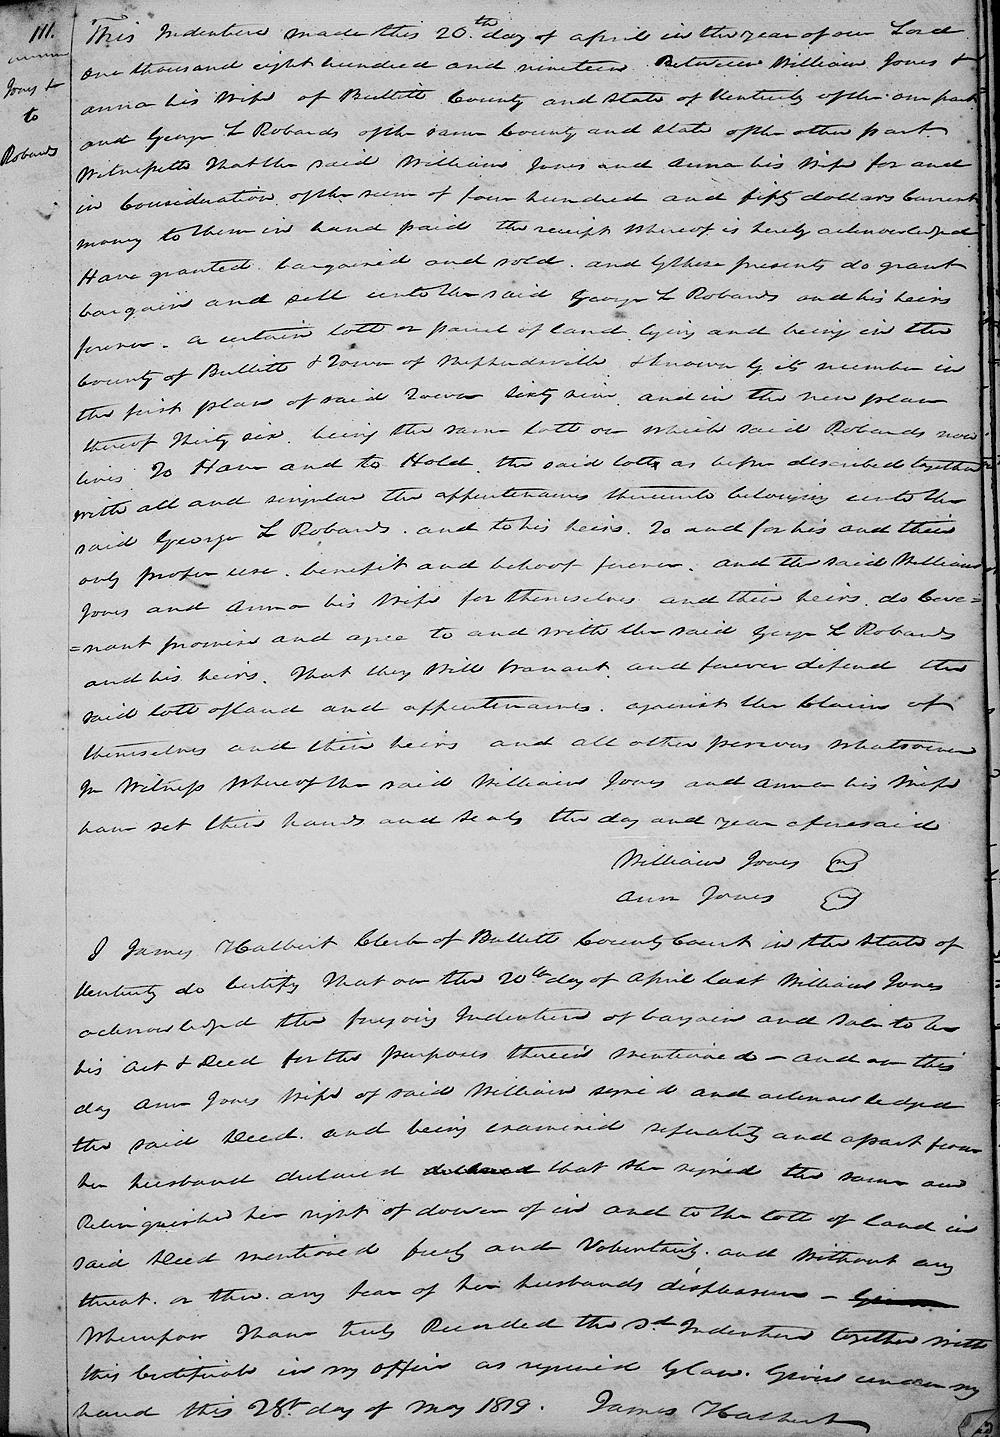 111.
Jones &
to
Robards
This Indenture made this 20th day of april in the year of our Lord
one thousand eight hundred and nineteen Between William Jones &
anna his Wife of Bullitt County and State of Kentucky of the one part
and George L Robards of the same County and State of the other part
Witnesseth That the said William Jones and Anna his Wife for and
in Consideration of the sum of four hundred and fifty dollars Current
money to them in hand paid the receipt Whereof is hereby acknowledged
Have granted bargained and sold and by these presents do grant
bargain and sell unto the said George L Robards and his heirs
forever. a certain lott or parcel of land lying and being in the
County of Bullitt & Town of Shepherdsville & known by its number in
the first plan of said Town Sixty nine and in the new plan
thereof Thirty six being the same lott on which said Robards now
lives To Have and to Hold the said lott as before described together
with all and singular the appurtenances thereunto belonging unto the
said George L Robards. and to his heirs. To and for his and their
only proper use. benefit and behoof forever. and the said William
Jones and Anna his Wife for themselves and their heirs do Cove=
=nant promise and agree to and with the said George L Robards
and his heirs. That they Will Warrant and forever defend the
said lott of land and appurtenances. against the Claim of
themselves and their heirs and all other persons whatsoever
In Witness Whereof the said William Jones and Anna his Wife
have set their hands and seals the day and year aforesaid
William Jones
Ann Jones
I James Halbert Clerk of Bullitt County Court in the State of
Kentucky do Certify That on the 20th day of April last William Jones
acknowledged the foregoing Indenture of bargain and Sale to be
his Act & Deed for the purposes therein mentioned - and on this
day Ann Jones Wife of said William signed and acknowledged
the said Deed. and being examined separately and apart from
her husband declared that she signed the same and
Relinquished her right of dower of in and to the lott of land in
said Deed mentioned freely and Voluntarily. and Without any
threat. or thro. any fear of her husbands displeasure -
Whereupon I have truly Recorded the sd Indenture together with
this Certificate in my office as required by law. Given under my
hand this 28t day of May 1819. James Halbert